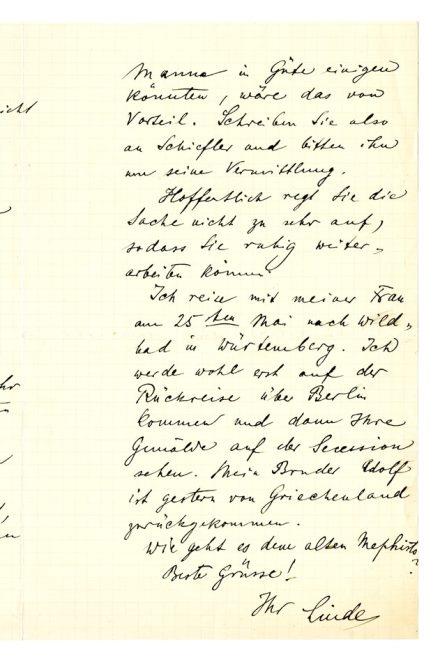 icht
Manne in Güte einigen
könnten, wäre das von
Vorteil. Schreiben Sie also
an Schiefler und bitten ihn
um seine Vermittlung.
Hoffentlich regt Sie die
Sache nicht zu sehr auf,
sodass Sie ruhig weiter-
arbeiten können.
Ich reise mit meiner Frau
am 25ten Mai nach Wild-
bad in Württemberg. Ich
werde wohl erst auf der
Rückreise über Berlin
kommen und dann Ihre
Gemälde auf der Secession
sehen. Mein Bruder Adolf
ist gestern von Griechenland
zurückgekommen.
Wie geht es dem alten Mephisto?
Beste Grüsse!
Ihr Linde